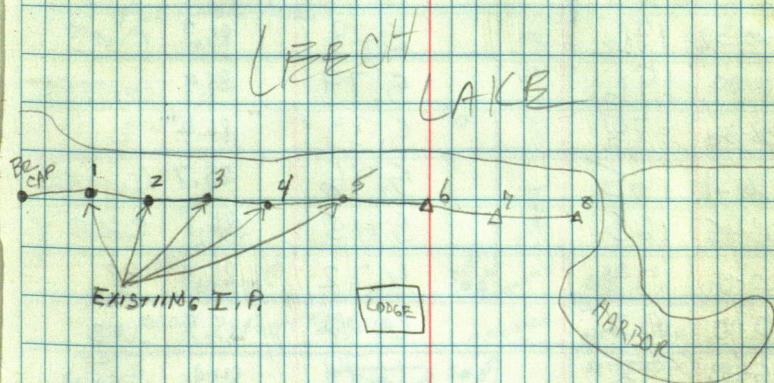 LEECH
LAKE
BR
CAP
1
2
3
4
5
6
7
8
EXISTING I.P.
LODGE
HARBOR